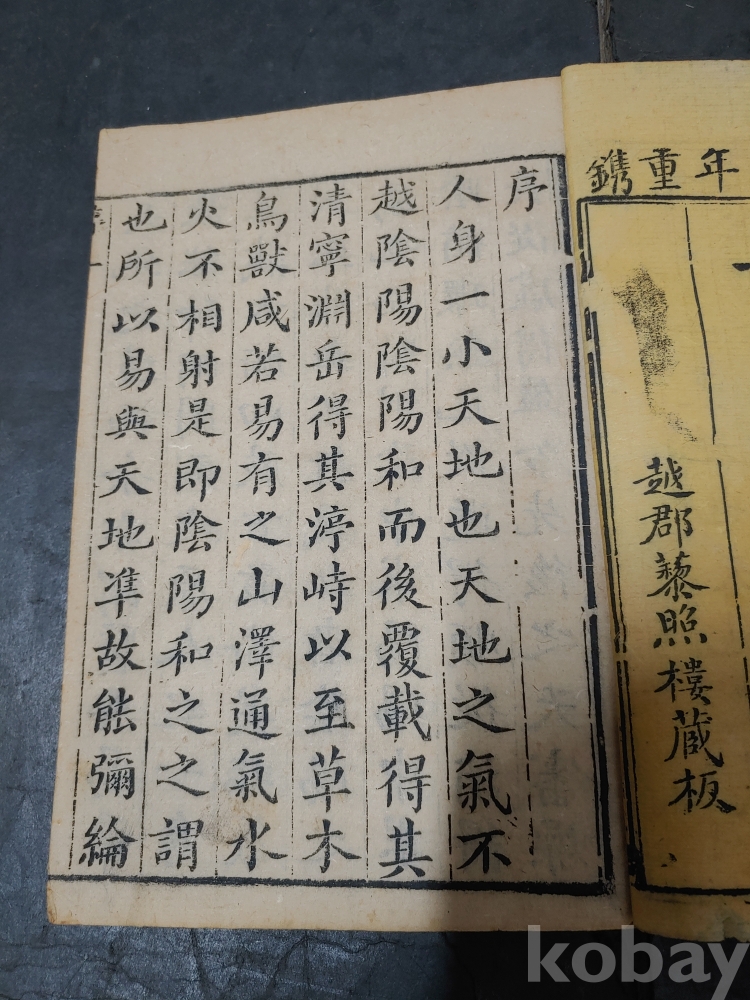 年重鐫
越郡藜照樓藏板
序
人身一小天地也天地之氣不
越陰陽陰陽和而後覆載得其
清寧淵岳得其渟峙以至草木
鳥獸咸若易有之山澤通氣水
火不相射是即陰陽和之之謂
也所以易與天地準故能彌綸
kobay